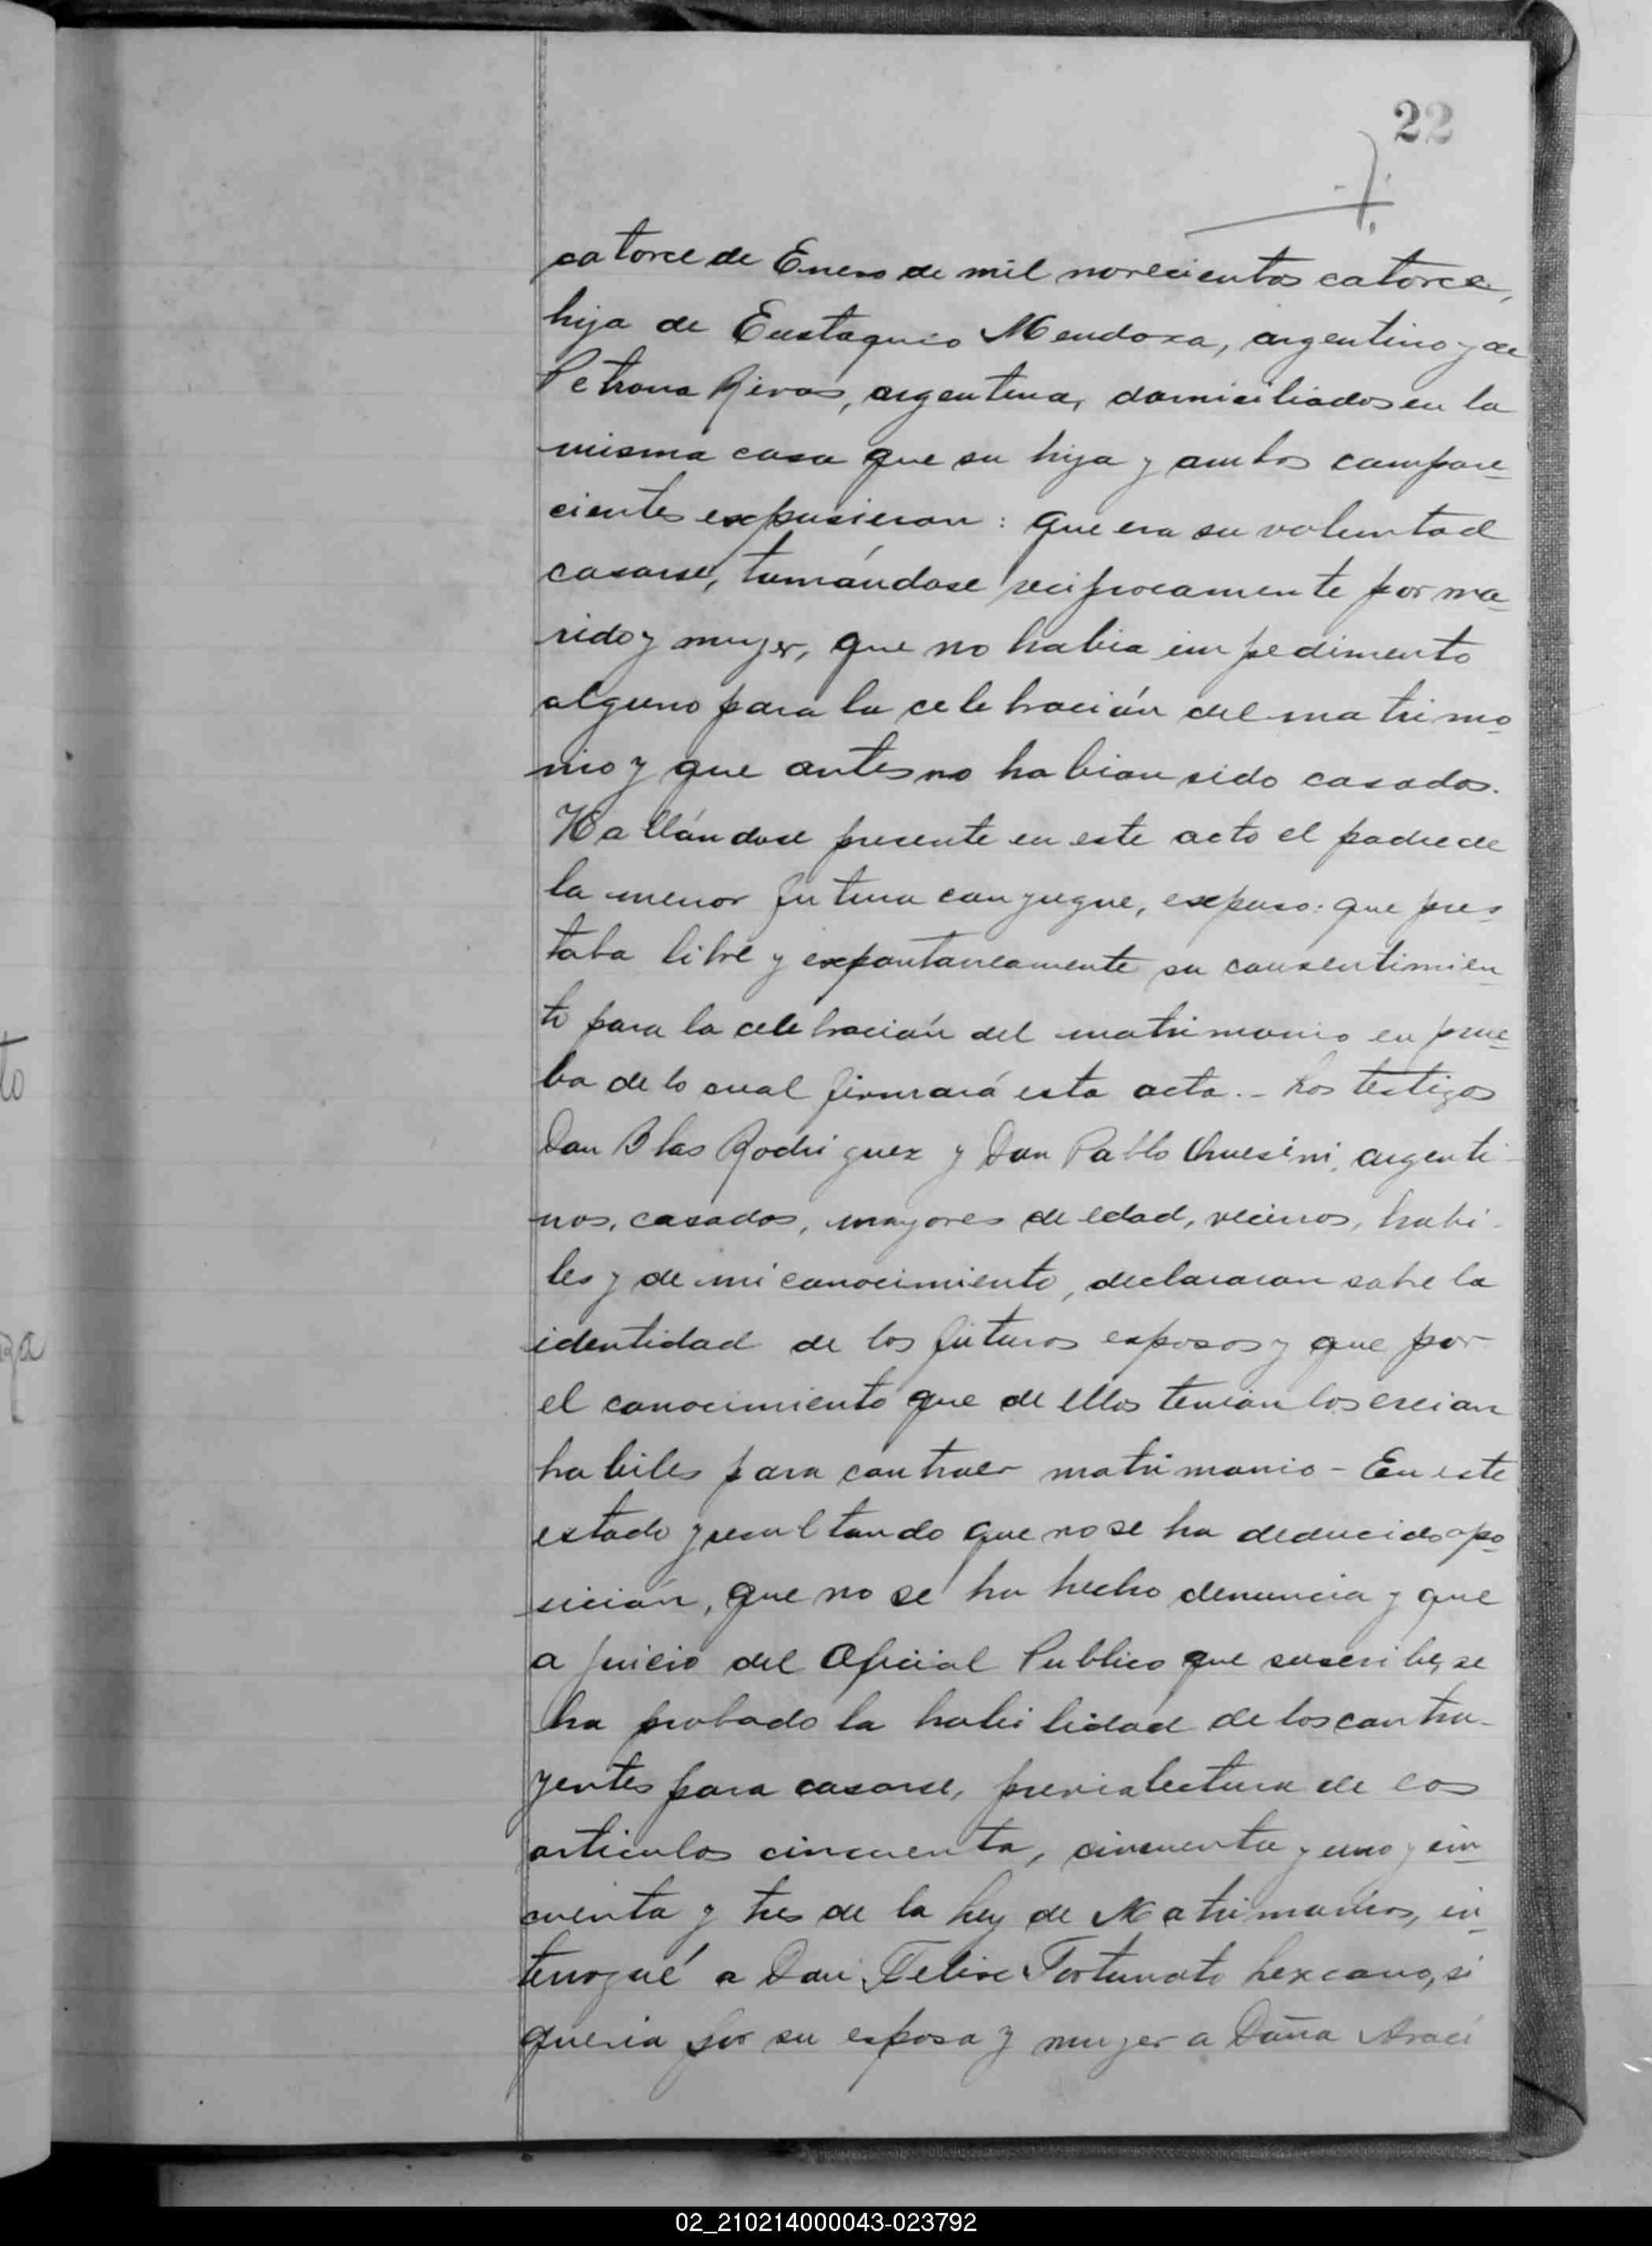 22
catorce de Enero de mil novecientos catorce,
hija de Eustaquio Mendoza, argentino y de
Petrona Rivas, argentina, domiciliados en la
misma casa que su hija y ambos compare-
cientes expusieron: que era su voluntad
casarse, tomándose reciprocamente por ma-
rido y mujer, que no habia impedimento
alguno para la celebración del matrimo-
nio y que antes no habian sido casados.
Hallándose presente en este acto el padre de
la menor futura conyugue, expuso: que pres-
taba libre y expontaneamente su consentimien-
to para la celebración del matrimonio en prue-
ba de lo cual firmará esta acta.- Los testigos
Don Blas Rodriguez y Don Pablo argenti-
nos, casados, mayores de edad, vecinos, habi-
les y de mi conocimiento, declararon sobre la
identidad de los futuros esposos y que por
el conocimiento que de ellos tenian los creian
habiles para contraer matrimonio - En este
estado y resultando que no se ha deducido opo-
sición, que no se ha hecho denuncia y que
a juicio del Oficial Publico que suscribe, se
ha probado la habilidad de los contra-
yentes para casarse, previa lectura de los
articulos cincuenta, cincuenta y uno y cin-
cuenta y tres de la Ley de Matrimonios, in-
terrogué a Don Felix Fortunato Lexcano, si
queria por su esposa y mujer a Doña Araci
02_210214000043-023792